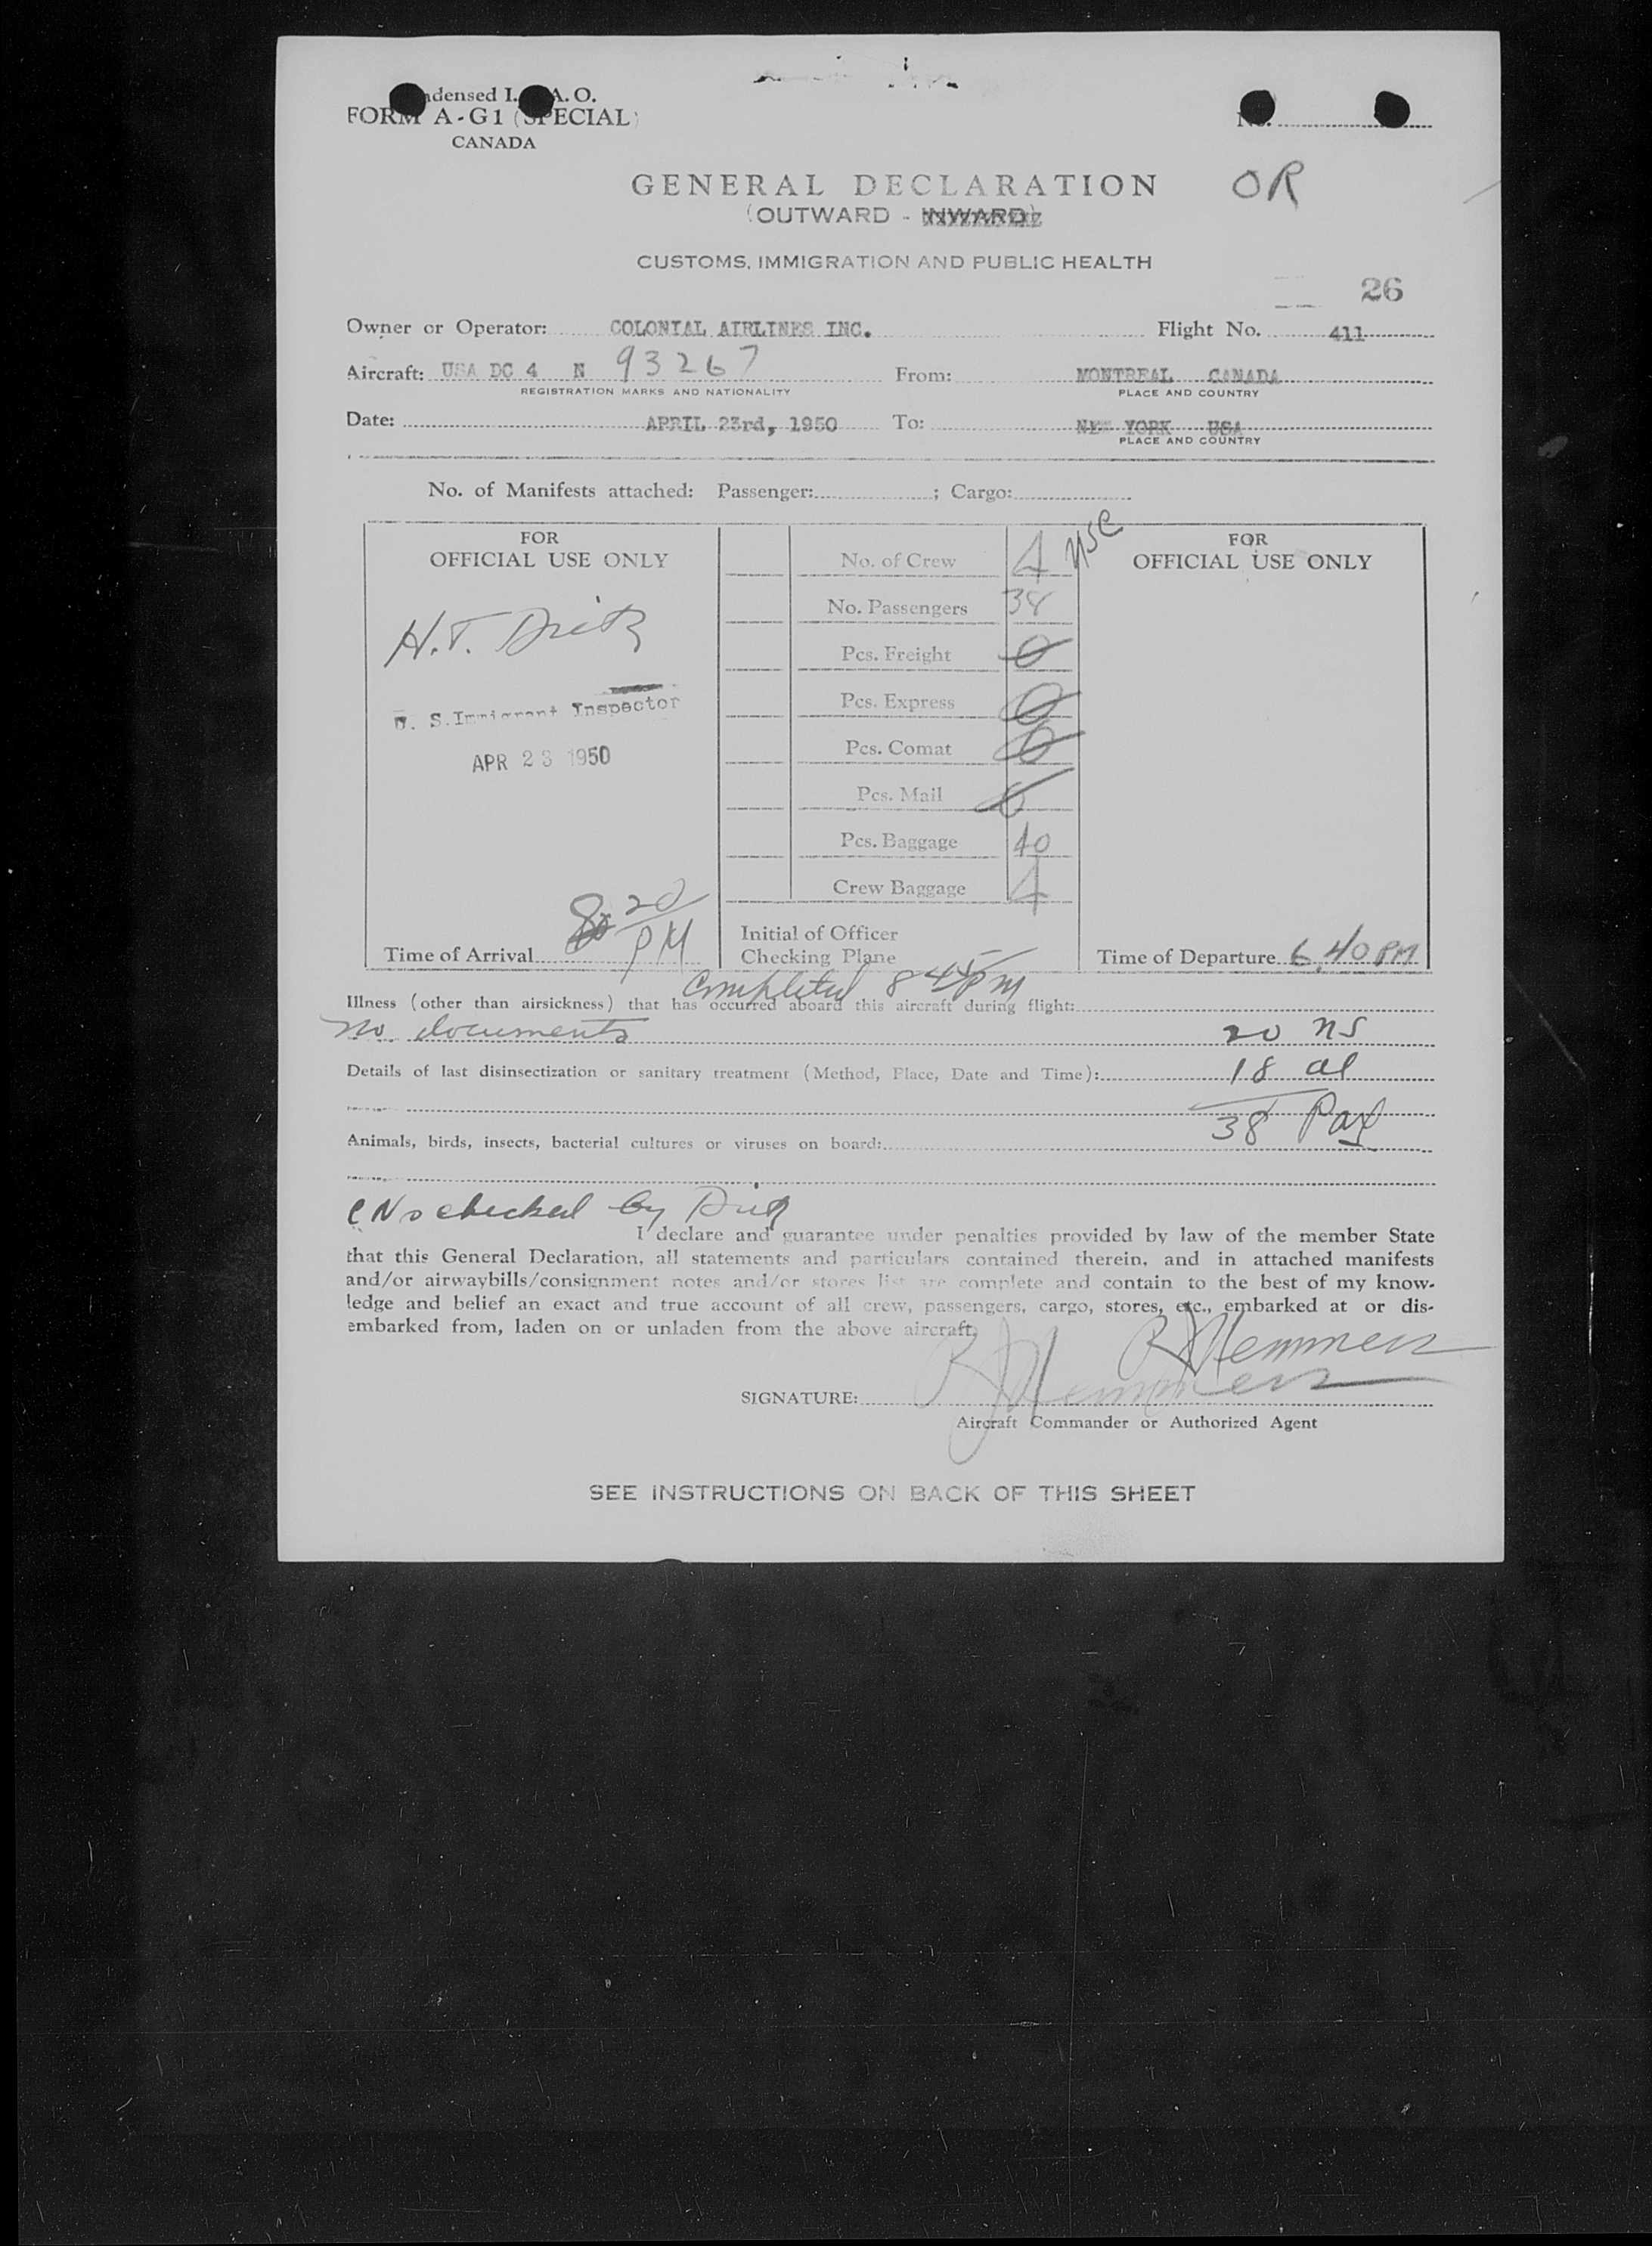 Condensed I.C.A.O.
FORM A-G1 (SPECIAL)
CANADA
No.
GENERAL DECLARATION
OR
(OUTWARD - INWARD)
CUSTOMS, IMMIGRATION AND PUBLIC HEALTH
26
Owner or Operator: COLONIAL AIRLINES INC. Flight No. 411
Aircraft: USA DC 4 N 93267 From: MONTREAL CANADA
REGISTRATION MARKS AND NATIONALITY PLACE AND COUNTRY
Date: APRIL 23rd, 1950 To: NEW YORK USA
PLACE AND COUNTRY
No. of Manifests attached: Passenger: ; Cargo:
FOR
OFFICIAL USE ONLY
H.T. Dietz
U. S. Immigrant Inspector
APR 23 1950
Time of Arrival 8 20 PM
No. of Crew 4 USC
No. Passengers 38
Pcs. Freight 0
Pcs. Express 0
Pcs. Comat 0
Pcs. Mail 0
Pcs. Baggage 40
Crew Baggage 4
Initial of Officer
Checking Plane
FOR
OFFICIAL USE ONLY
Time of Departure 6.40 PM
Completed 8 45 pm
Illness (other than airsickness) that has occurred aboard this aircraft during flight:
no documents 20 ns
Details of last disinsectization or sanitary treatment (Method, Place, Date and Time): 18 al
38 Pax
Animals, birds, insects, bacterial cultures or viruses on board:
checked by Dietz
I declare and guarantee under penalties provided by law of the member State
that this General Declaration, all statements and particulars contained therein, and in attached manifests
and/or airwaybills/consignment notes and/or stores list are complete and contain to the best of my know-
ledge and belief an exact and true account of all crew, passengers, cargo, stores, etc., embarked at or dis-
embarked from, laden on or unladen from the above aircraft.
SIGNATURE:
Aircraft Commander or Authorized Agent
SEE INSTRUCTIONS ON BACK OF THIS SHEET